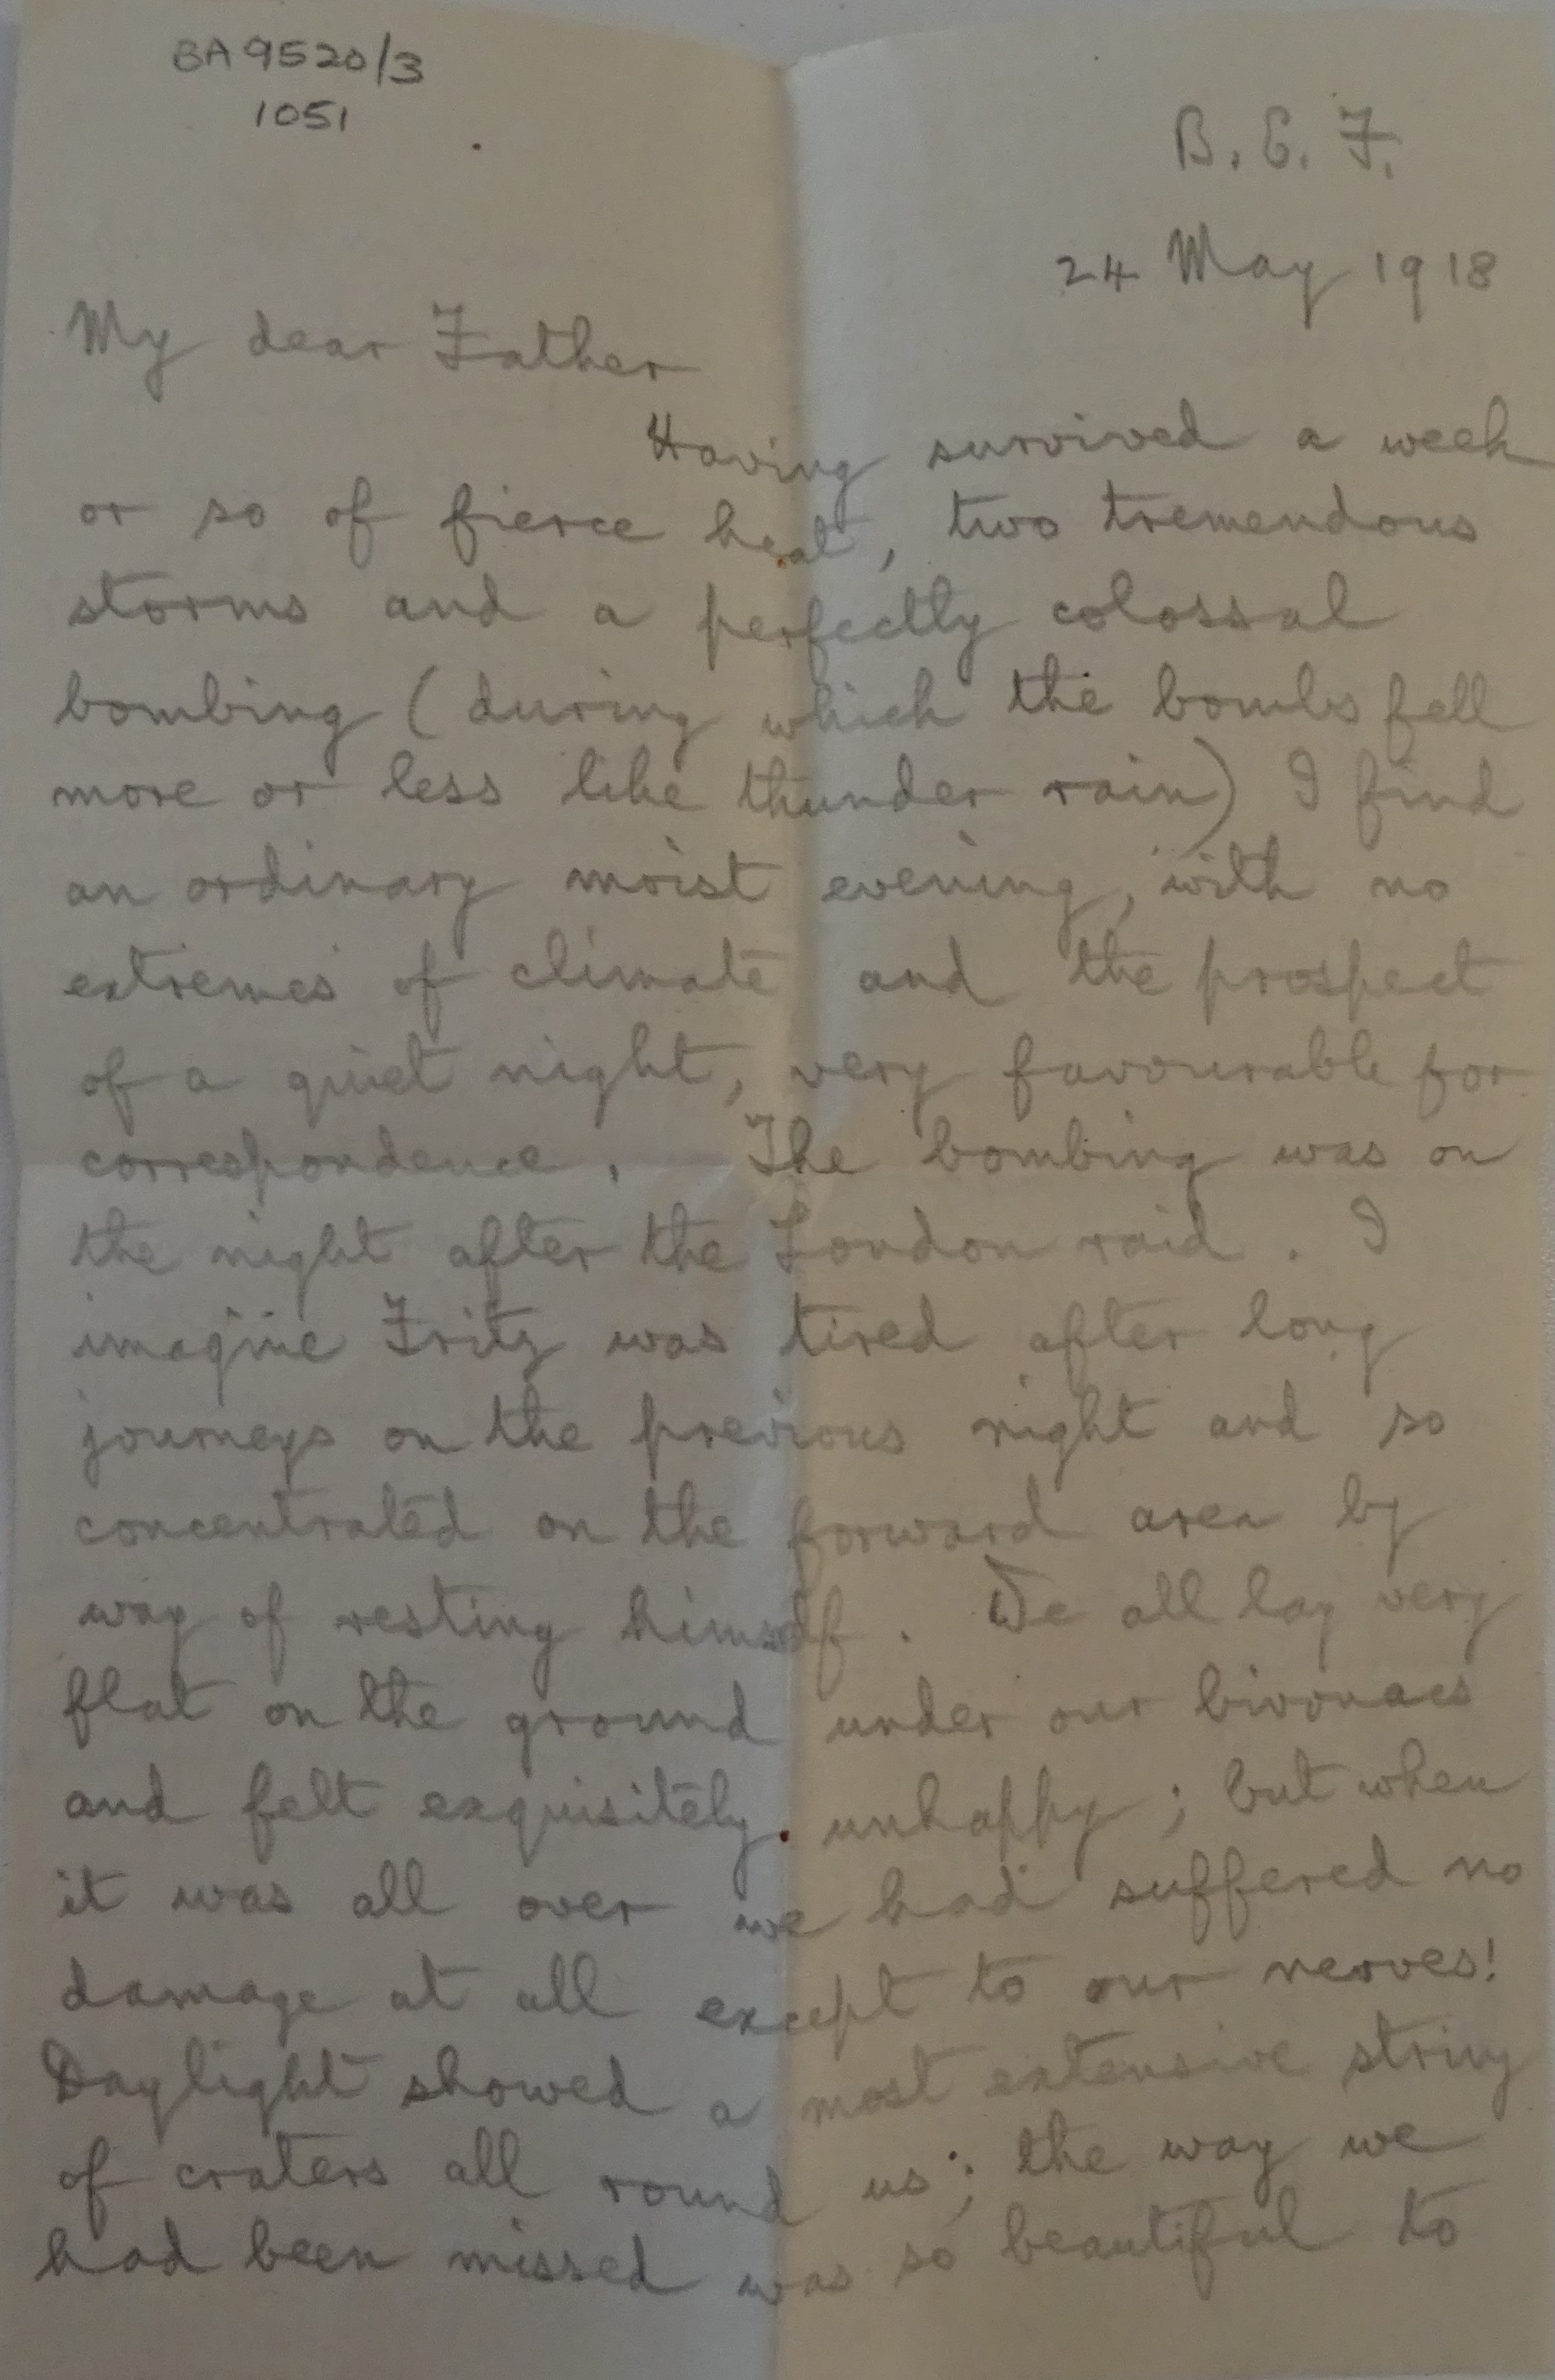 BA 9520/3
1051
B. E. F.
24 May 1918
My dear Father
Having survived a week
or so of fierce heat, two tremendous
storms and a perfectly colossal
bombing (during which the bombs fell
more or less like thunder rain) I find
an ordinary moist evening, with no
extremes of climate and the prospect
of a quiet night, very favourable for
correspondence. The bombing was on
the night after the London raid. I
imagine Fritz was tired after long
journeys on the previous night and so
concentrated on the forward area by
way of resting himself. We all lay very
flat on the ground under our bivouacs
and felt exquisitely unhappy; but when
it was all over we had suffered no
damage at all except to our nerves!
Daylight showed a most extensive string
of craters all round us; the way we
had been missed was so beautiful to